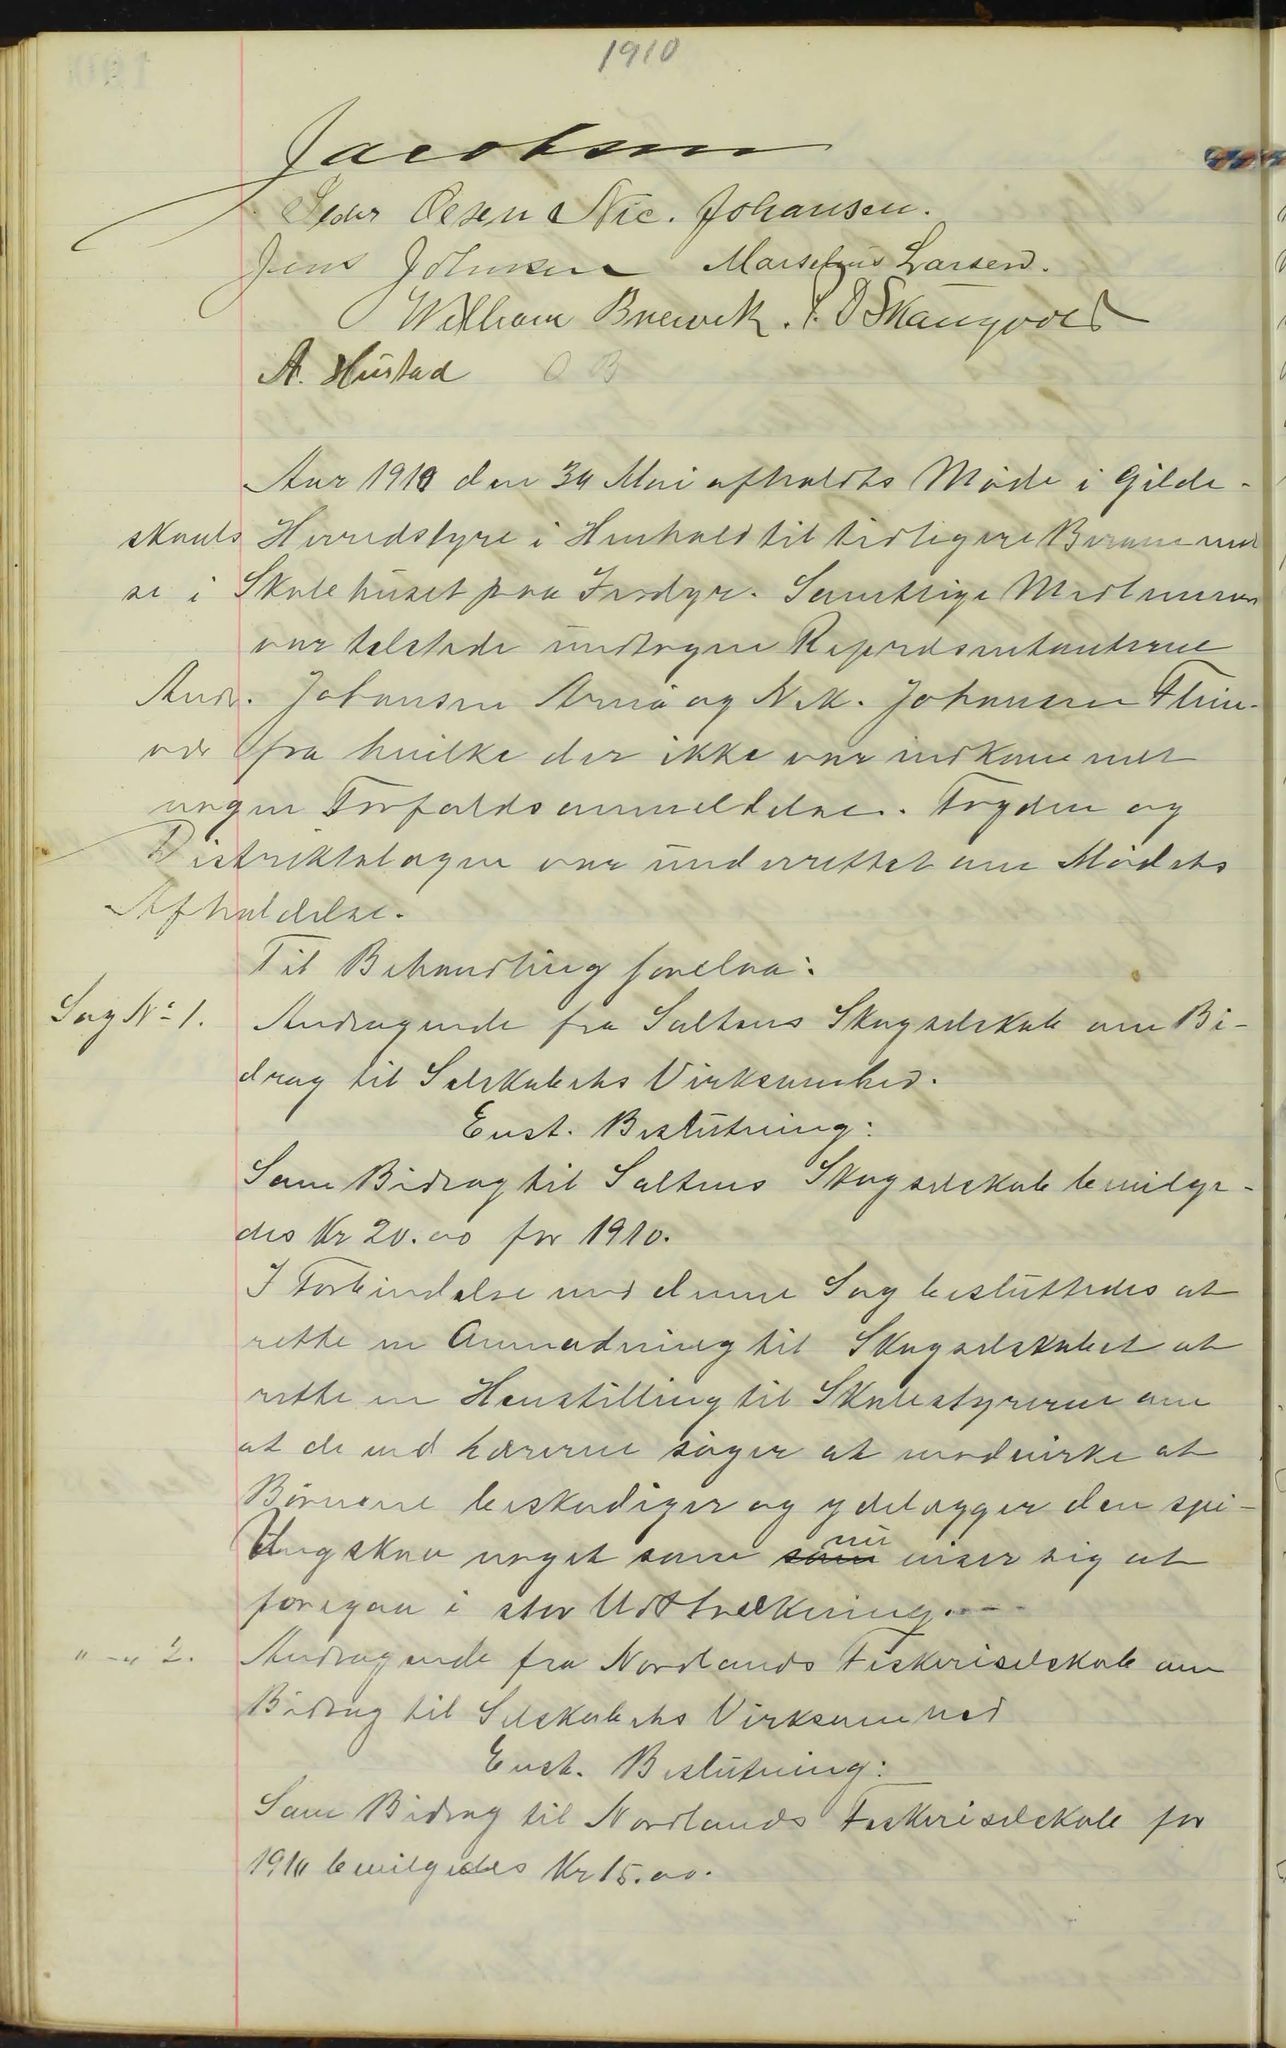 1910
Jacobsen
Peder Olsen Nic. Johansen.
Jens Johnsen Marselius Larsen.
William Brevik. P. O Skaugvold
A. Hustad O B
Aar 1910 den 30 Mai afholdts Møde i Gilde-
skaals Herredstyre i Henhold til tidligere Berammel
se i Skolehuset paa Inndyr. Samtlige Medlemmer
var tilstede undtagen Repræsentanterne
Andr. Johansen Arnø og N. K. Johansen Flein-
vær fra hvilke der ikke var indkommet
nogen Forfaldsanmeldelse. Fogden og
Distriktslægen var underrettet om Mødets
Afholdelse.
Til Behandling forelaa:
Sag No 1. Andragende fra Saltens Skogselskab om Bi-
drag til Selskabets Virksomhed.
Enst. Beslutning:
Som Bidrag til Saltens Skogselskab bevilge-
des Kr 20.00 for 1910.
I Forbindelse med denne Sag besluttedes at
rette en Anmodning til Skogselskabet at
rette en Henstilling til Skolestyrerne om
at de ved Lærerne søger at modvirke at
Børnene beskadiger og ydelægger den spi-
Ungskov noget som <s>som</s> nu viser sig at
foregaa i stor Udstrækning.--
" -" 2. Andragende fra Nordlands Fiskeriselskab om
Bidrag til Selskabets Virksomhed
Enst. Beslutning:
Som Bidrag til Nordlands Fiskeriselskab for
1910 bevilgedes Kr 15.00.